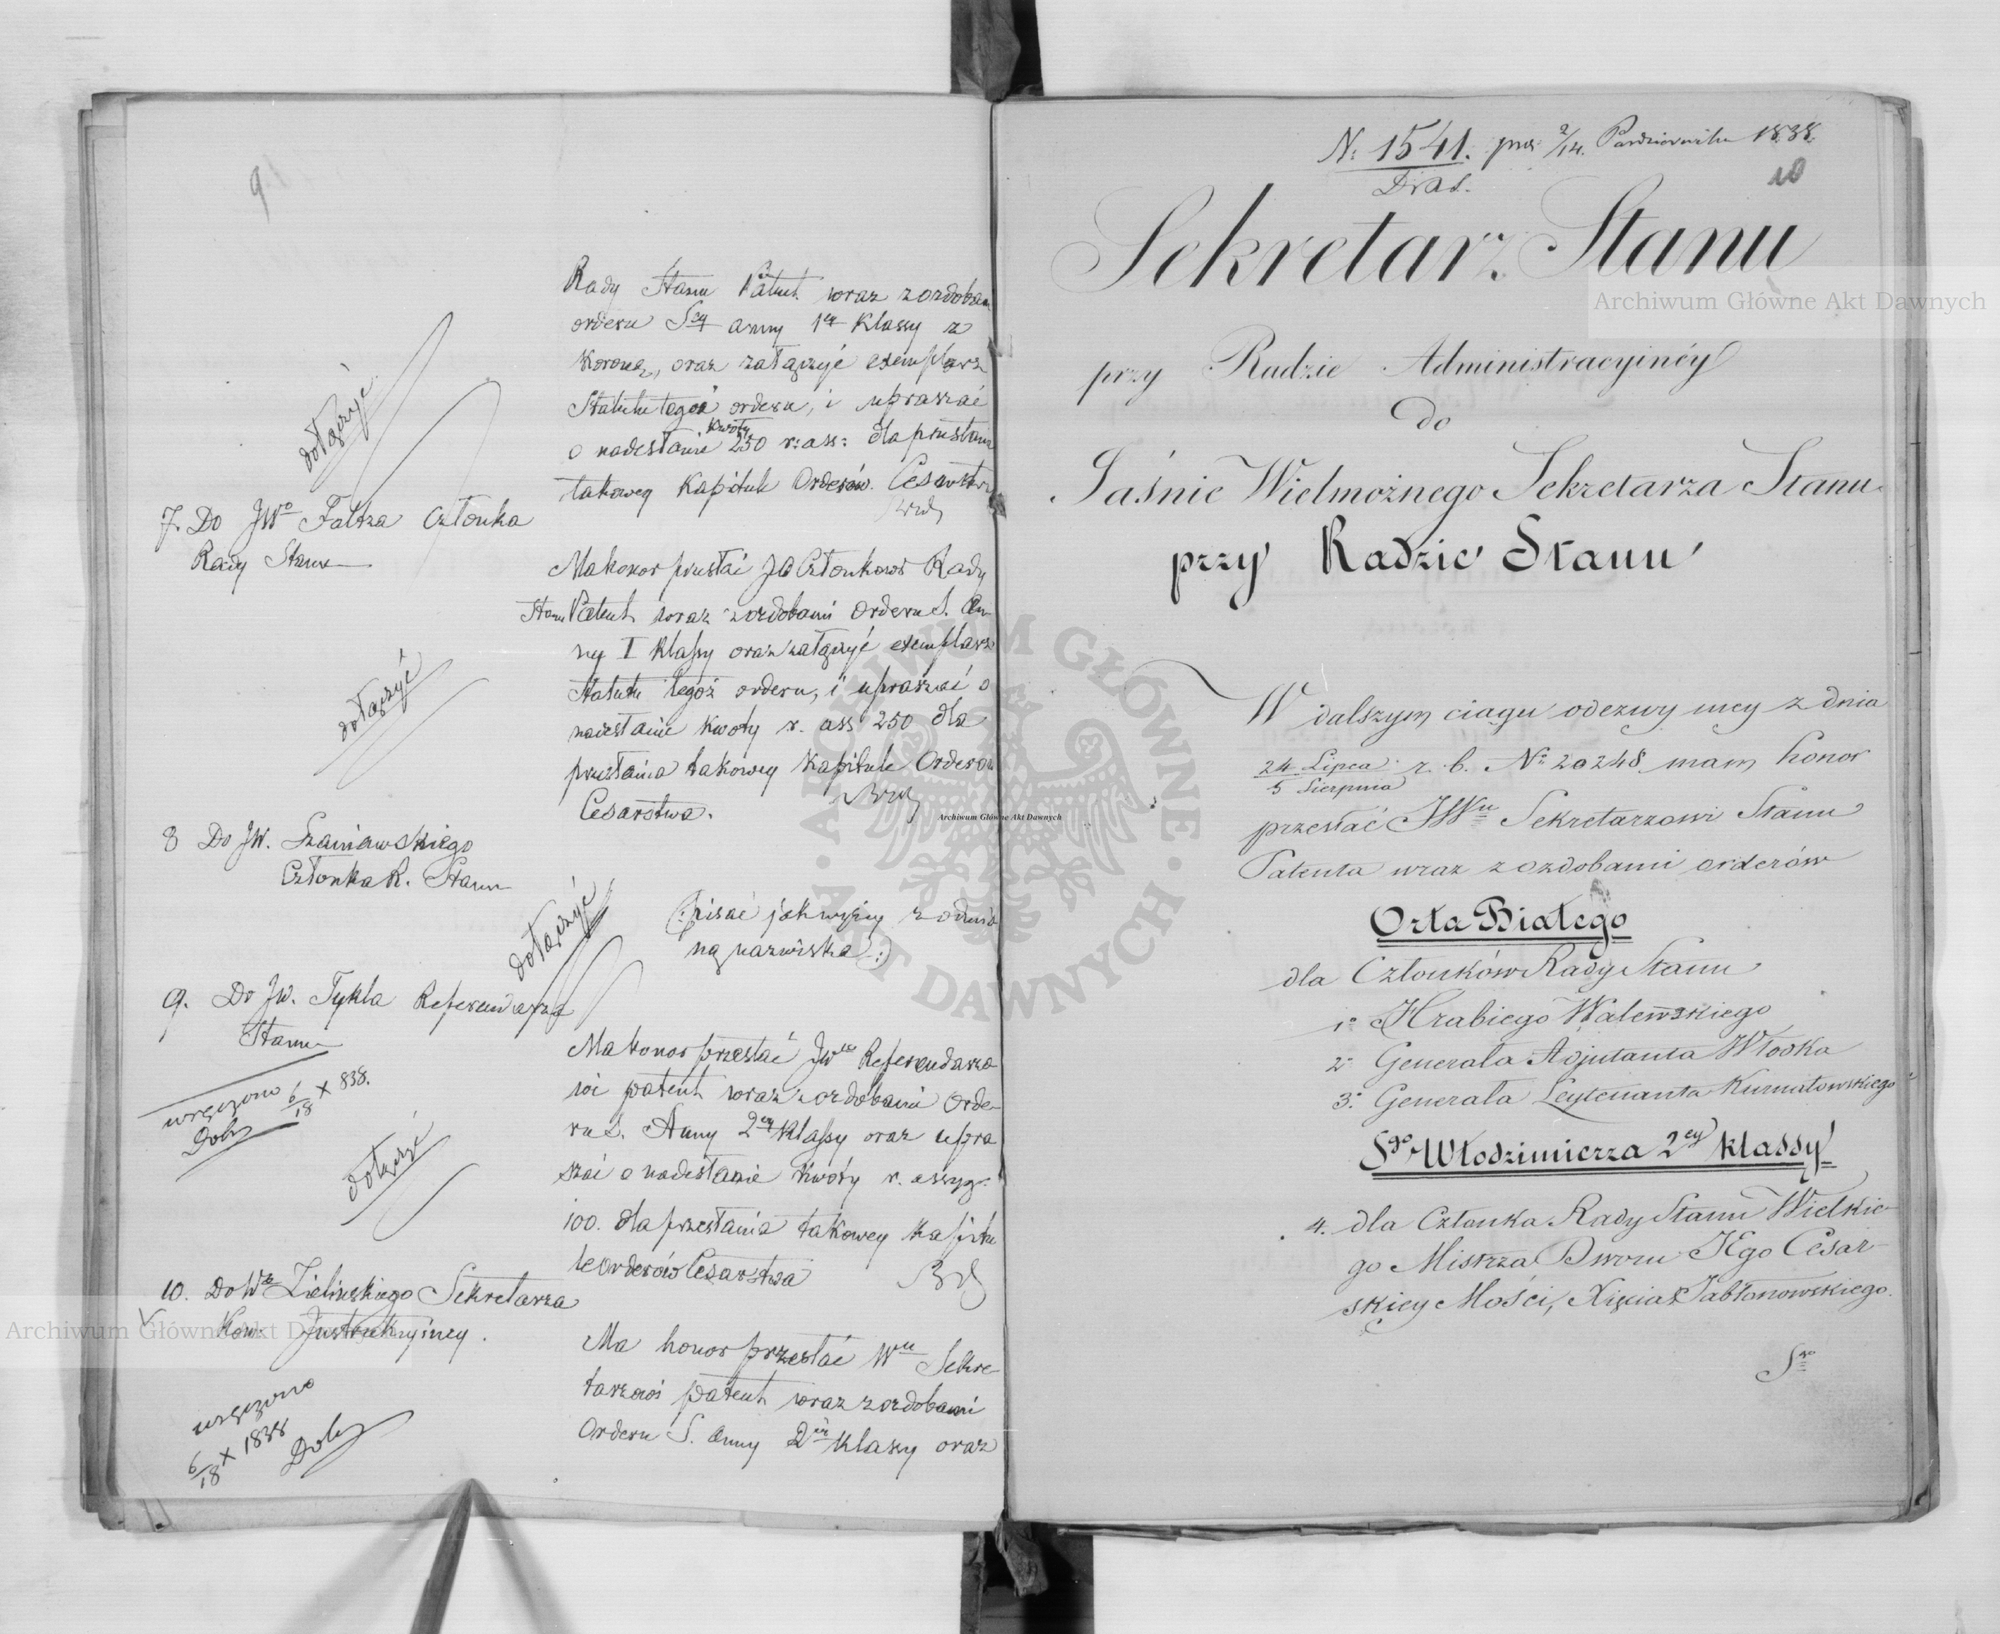 9
Rady Stanu Patent wraz z ozdobami
orderu Sey anny 1ey Klassy z
Koroną, oraz załączyć exemplarz
Statutu tegoż orderu, i upraszać
o nadesłanie kwoty 250 r: ass: dla przesłania
takowey Kapitule Orderów Cesarstwa
dołączyć
7. Do JWo Faltza Członka
Rady Stanu
Ma honor przesłać JW Członkowi Rady
Stanu Patent wraz z ozdobami Orderu S. An-
ny I Klassy oraz załączyć exemplarz
Statutu tegoż orderu, i upraszać o
nadesłanie kwoty r. ass 250 dla
przesłania takowey Kapitule Orderów
Cesarstwa.
dołączyć
8 Do JW. Szaniawskiego
Członka R. Stanu
(: pisać jak wyżey z odmia
ną nazwiska :)
dołączyć
9. Do JW. Tykla Referendarza
Stanu
wręczono 6/18 X 838.
Ma honor przesłać JWu Referendarzo
wi patent wraz z ozdobami Orde-
ru S. Anny 2ey Klassy oraz upra
szać o nadesłanie kwoty r. assyg:
100. dla przesłania takowey Kapitu
le Orderów Cesarstwa
dołączyć
10. Do Wo Zielińskiego Sekretarza
Kom. Instrukcyiney.
Ma honor przesłać Wmu Sekre-
tarzowi patent wraz z ozdobami
Orderu S. Anny 2ey Klassy oraz
wręczono
6/18 X 1838
N: 1541. prez: 2/14. Października 1838.
10
Sekretarz Stanu
przy Radzie Administracyinéy
do
Jaśnie Wielmożnego Sekretarza Stanu
przy Radzie Stanu
W dalszym ciągu odezwy mey z dnia
24 Lipca / 5 Sierpnia r. b. Nr 20248 mam honor
przesłać JWu Sekretarzowi Stanu
Patenta wraz z ozdobami orderów
Orła Białego
dla Członków Rady Stanu
1o Hrabiego Walewskiego
2o Generała Adjutanta Włodka
3o Generała Leytenanta Kurnatowskiego
Sgo Włodzimierza 2ey klassy
4. dla Członka Rady Stanu Wielkie-
go Mistrza Dworu JEgo Cesar-
skiey Mości, Xięcia Jabłonowskiego.
Sgo
Archiwum Główne Akt Dawnych
Archiwum Główne Akt Dawnych
Archiwum Główne Akt Dawnych
ARCHIWUM GŁÓWNE AKT DAWNYCH